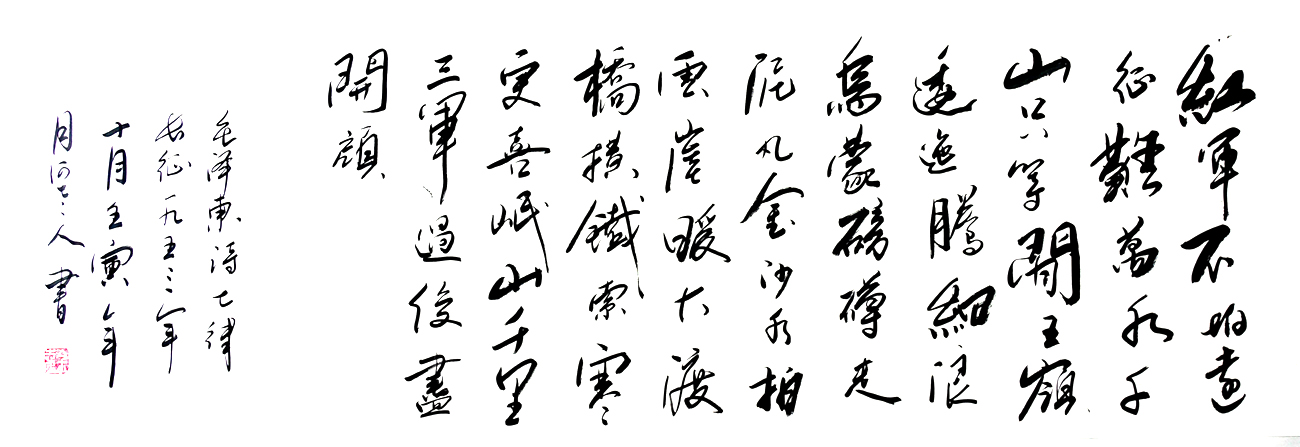 紅軍不怕遠
征難萬水千
山只等閒五嶺
逶迤騰細浪
烏蒙磅礴走
泥丸金沙水拍
雲崖暖大渡
橋橫鐵索寒
更喜岷山千里
三軍過後盡
開顏
毛澤東詩七律
長征一九五三年
十月壬寅年
月人書